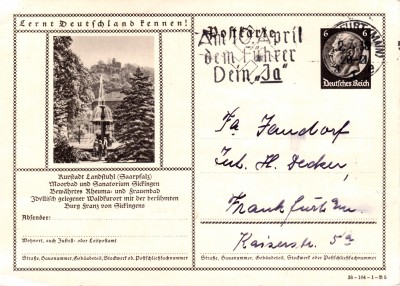 Lernt Deutschland kennen!
Postkarte
Am 10. April
dem Führer
Dein „Ja“
6 6
Deutsches Reich
Fa. Jandorf
Inh. H. Decker,
Frankfurt a. M.
Kaiserstr. 5a
Kurstadt Landstuhl (Saarpfalz)
Moorbad und Sanatorium Sickingen
Bewährtes Rheuma- und Frauenbad
Idyllisch gelegener Waldkurort mit der berühmten
Burg Franz von Sickingens
Absender:
Wohnort, auch Zustell- oder Leitpostamt
Straße, Hausnummer, Gebäudeteil, Stockwerk od. Postschließfachnummer
Straße, Hausnummer, Gebäudeteil, Stockwerk oder Postschließfachnummer